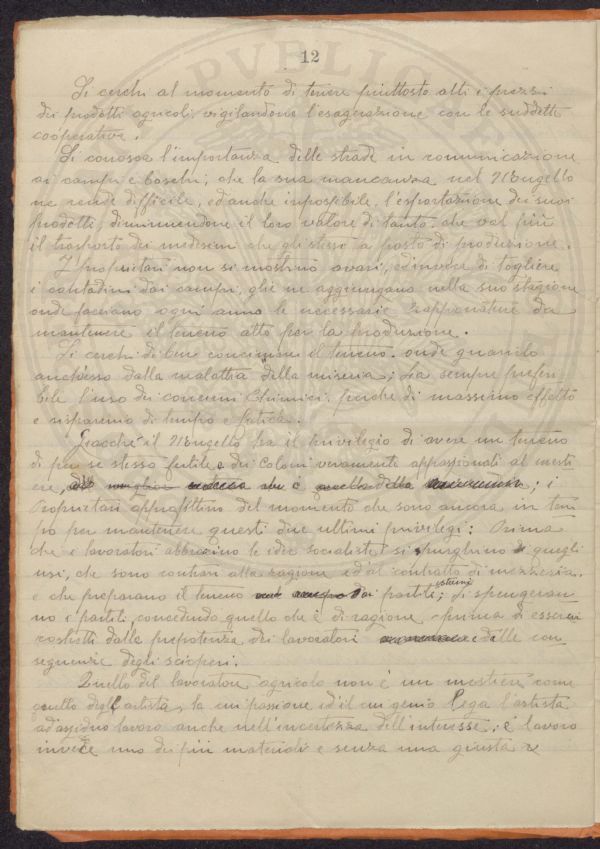 12
Si cerchi al momento di tenere piuttosto alti i prezzi
dei prodotti agricoli vigilandone l'esagerazione con le suddette
cooperative.
Si conosca l'importanza delle strade in comunicazione
ai campi e boschi, che la sua mancanza nel Mugello
ne rende difficile, ed anche impossibile, l'esportazione dei suoi
prodotti, diminuendone il loro valore di tanto che val più
il trasporto dei medesimi che gli stessi a posto di produzione.
I proprietari non si mostrino avari, ed invece di togliere
i contadini dai campi, glie ne aggiungano nella sua stagione
onde facciano ogni anno le necessarie
mantenere il terreno atto per la produzione.
Si cerchi di bene concimare il terreno onde guarirlo
anch'esso dalla malattia della miseria; sia sempre preferi
bile l'uso dei concimi chimici perche di massimo effetto
e risparmio di tempo e fatica.
Giacchè il Mugello ha il privilegio di avere un terreno
di per se stesso fertile e dei coloni veramente appassionati al mesti
ere, che è quella della ; i
Proprietari approfittino del momento che sono ancora in tem
po per mantenere questi due ultimi privilegi: Prima
che i lavoratori abbraccino le idee socialiste si spurghino di quegli
usi, che sono contrari alla ragione ed al contratto di mezzadria,
e che preparano il terreno dai partiti estremi; si spengeran
no i partiti, concedendo quello che è di ragione, prima di esserci
costretti dalla prepotenza dei lavoratori e dalle con
seguenze degli scioperi.
Quello del lavoratore agricolo non è un mestiere come
quello dell'artista, la cui passione ed il cui genio lega l'artista
ad assiduo lavoro anche nell'incertezza dell'interesse; è lavoro
invece uno dei più materiali e senza una giusta r